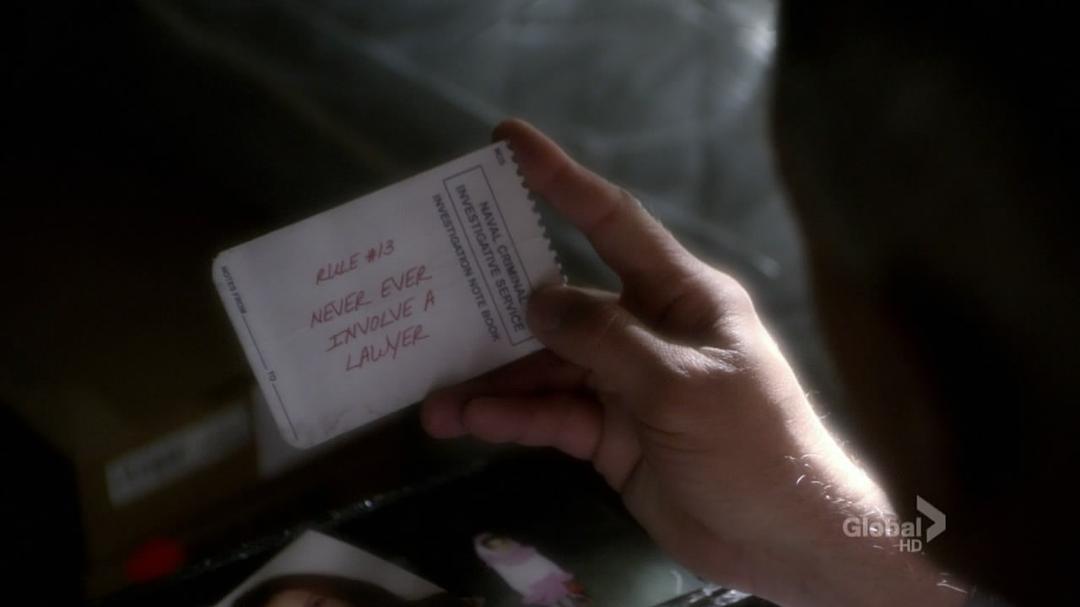 M28
NAVAL CRIMINAL
INVESTIGATIVE SERVICE
INVESTIGATION NOTE BOOK
RULE #13
NEVER EVER
INVOLVE A
LAWYER
NOTES FROM TO
Global
HD